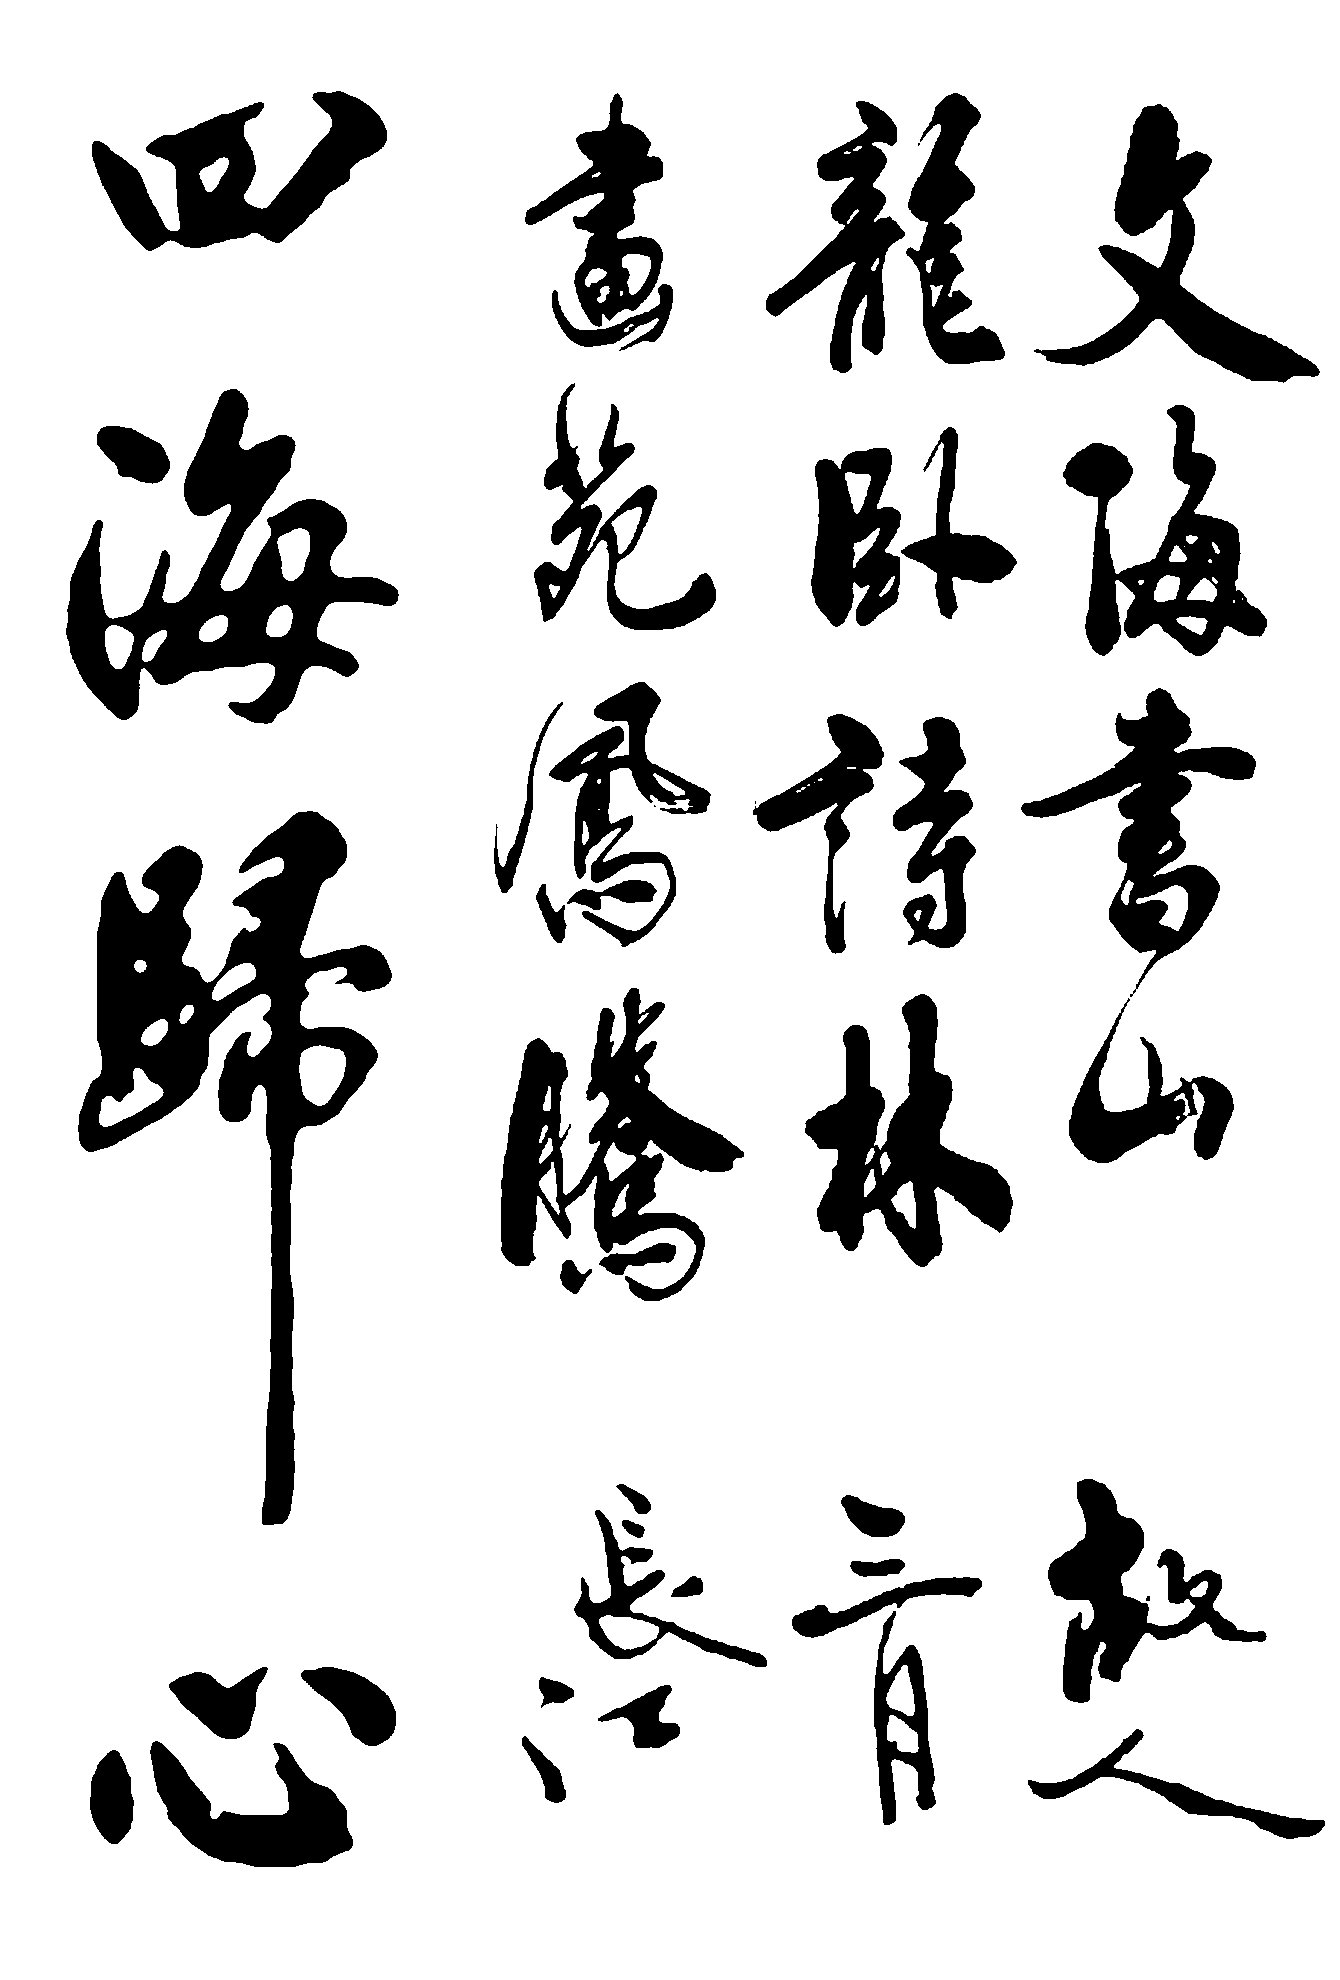 文海書山
龍卧詩林
畫苑鳳騰
四海歸心
故人
三月
長江